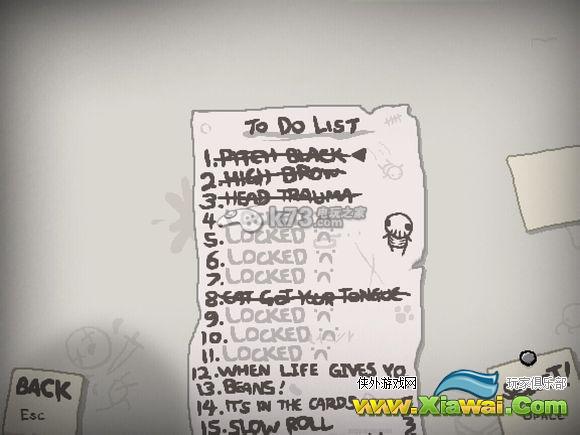 TO DO LIST
1. PITCH BLACK
2. HIGH BROW
3. HEAD TRAUMA
4.
k73 电玩之家
.com
5. LOCKED :(
6. LOCKED :(
7. LOCKED :(
8. CAT GOT YOUR TONGUE
9. LOCKED :(
10. LOCKED :(
11. LOCKED :(
12. WHEN LIFE GIVES YO
13. BEANS!
14. IT'S IN THE CARDS
15. SLOW ROLL
BACK
Esc
SPACE
侠外游戏网
玩家俱乐部
www.Xiawai.Com